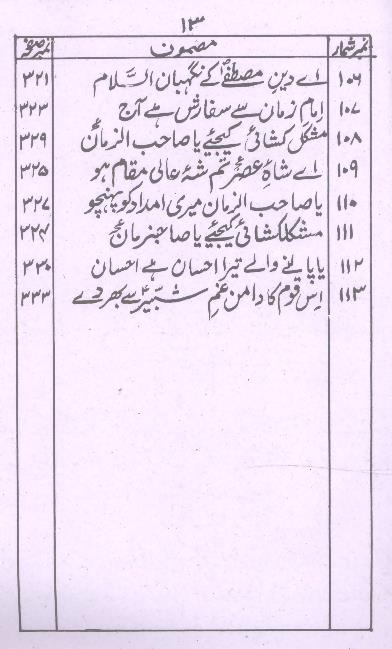 ۱۳
نمبر شمار مضمون نمبر صفحہ
۱۰۶ اے دینِ مصطفےٰؐ کے نگہبان السّلام ۳۲۱
۱۰۷ امامِ زمان سے سفارش ہے آج ۳۲۳
۱۰۸ مشکل کشائی کیجئے یا صاحب الزمانؑ ۳۲۹
۱۰۹ اے شاہِ عصرؑ تم شۂ عالی مقام ہو ۳۲۵
۱۱۰ یا صاحب الزمان میری امداد کو پہنچو ۳۲۷
۱۱۱ مشکلکشائی کیجئے یا صاحبِ زمانؑ
۱۱۲ یا پالنے والے تیرا احسان ہے احسان ۳۳۰
۱۱۳ اِس قوم کا دامن غمِ شبّیرؑ سے بھر دے ۳۳۳